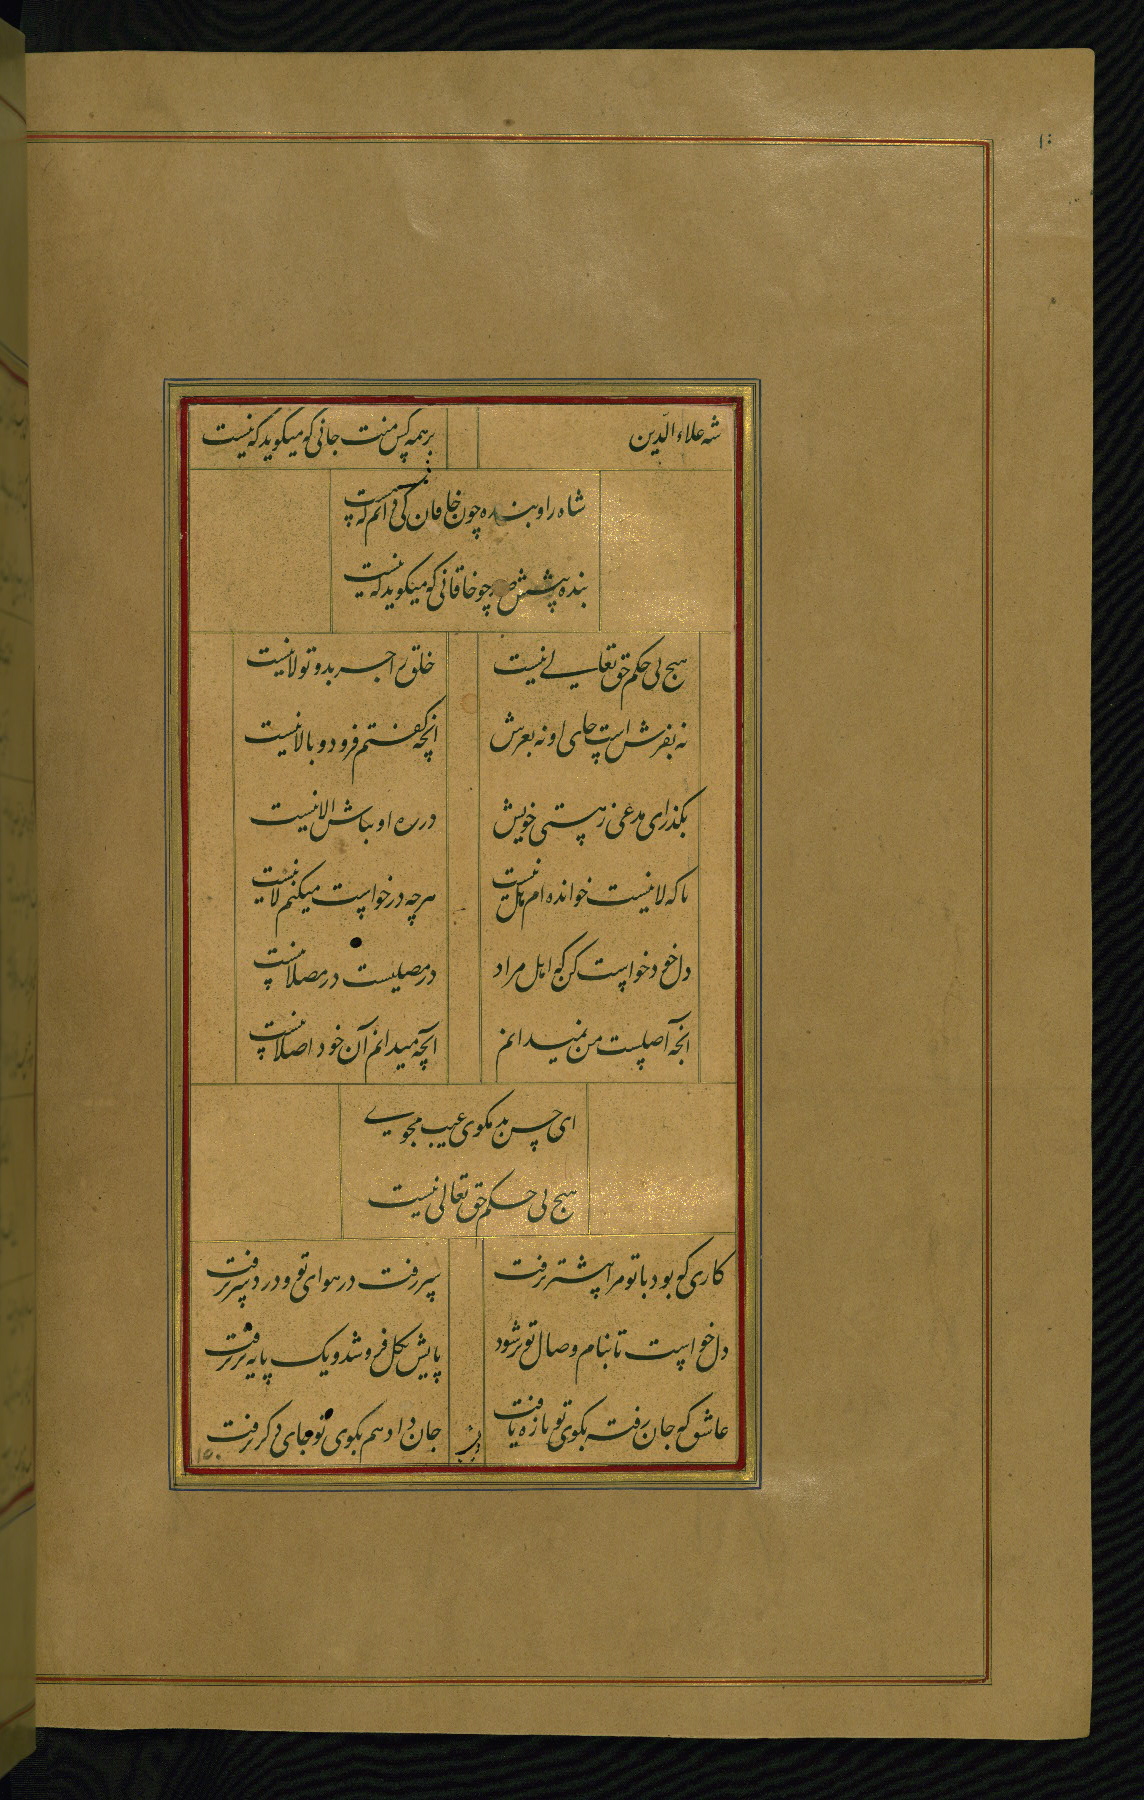 شه علاءالدّین
بر همه کس منت جانی که میکوید که نیست
شاه را و بنده چون خاقان کی دانم که نیست
بنده پیشش چو خاقانی که میکوید که نیست
هیچ بی حکم حق تعالی نیست
خلق را جز بدو تولا نیست
نه بفرش است جای او نه بعرش
انچه کفتم فرود و بالا نیست
بکذر ای مدعی ز هستی خویش
در ره او مباش الا نیست
ما که لا نیست خوانده ام
هرچه در خواست میکنم لا نیست
دل خود خواست کن که اهل مراد
در مصلیست در مصلا نیست
انچه اصلست من نمیدانم
آنچه میدانم آن خود اصلا نیست
ای حسن بد مکوی عیب مجوی
هیچ بی حکم حق تعالی نیست
کاری که بود با تو مرا پیشتر نرفت
سر رفت در هوای تو و درد سر نرفت
دل خواست تا ببام وصال تو بر شود
پایش بکل فرو شد و یک پایه بر نرفت
عاشق که جان رفته بکوی تو باز یافت
جان داد هم بکوی تو جای دکر نرفت